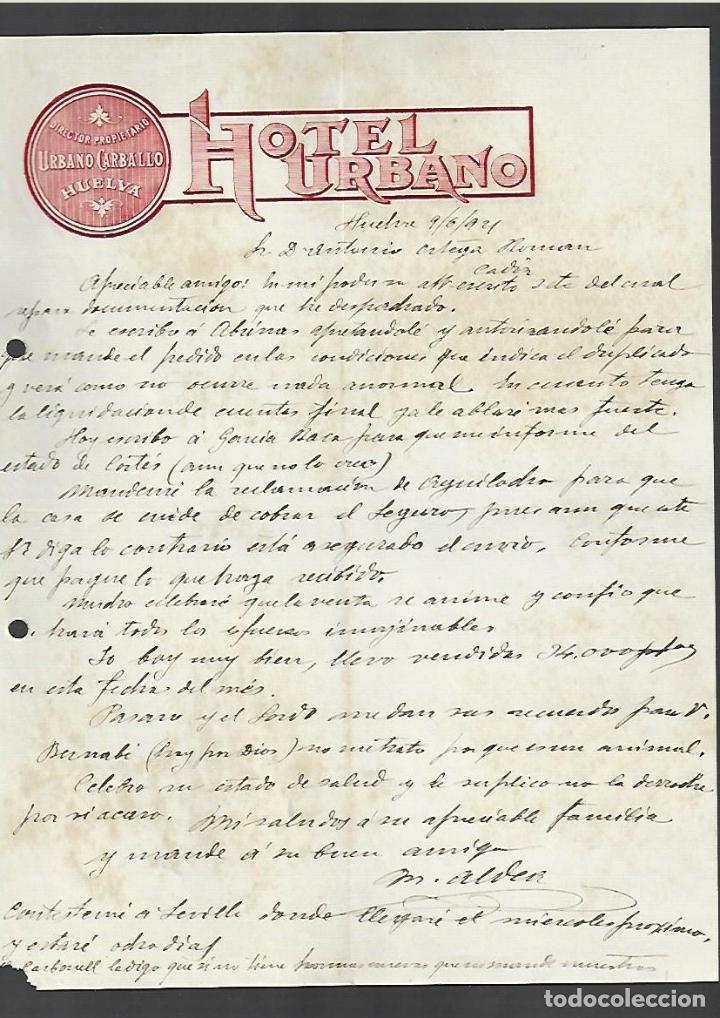 DIRECTOR PROPIETARIO
URBANO CARBALLO
HUELVA
HOTEL
URBANO
Huelva 9/6/921
Sr D Antonio Ortega Roman
Cadiz
Apreciable amigo: En mi poder su escrito del cual
documentacion que he despachado.
Le escribo á apretandolé y autorizandolé para
que mande el pedido en las condiciones que indica el duplicado
y verá como no ocurre nada anormal. En cuanto tenga
la liquidacion de cuentas final ya le ablaré mas fuerte.
Hoy escribo á Garcia Baca para que me informe del
estado de Cortés (aun que no lo creo)
Mandemé la reclamación de para que
la casa se cuide de cobrar el Seguro, pues aun que
diga lo contrario está asegurado el envio. Conforme
que pague lo que haya recibido.
Mucho celebraré que la venta se anime y confio que
hará todos los esfuerzos imaginables
Io boy muy bien, llevo vendidas 24.000 ptas
en esta fecha del més.
Pasaro y el Sordo me dan sus recuerdos para V.
Bernabé (hay por Dios) no me trato por que es un animal.
Celebro su estado de salud y le suplico no la derroche
por si acaso. Mis saludos á su apreciable familia
y mande á su buen amigo
M. Alder
Contestemé á Sevilla donde llegaré el miercoles proximo,
y estaré odro dias
Carbonell le digo que si no tiene formas nuevas que no mande muestras
todocoleccion
todocoleccion.net